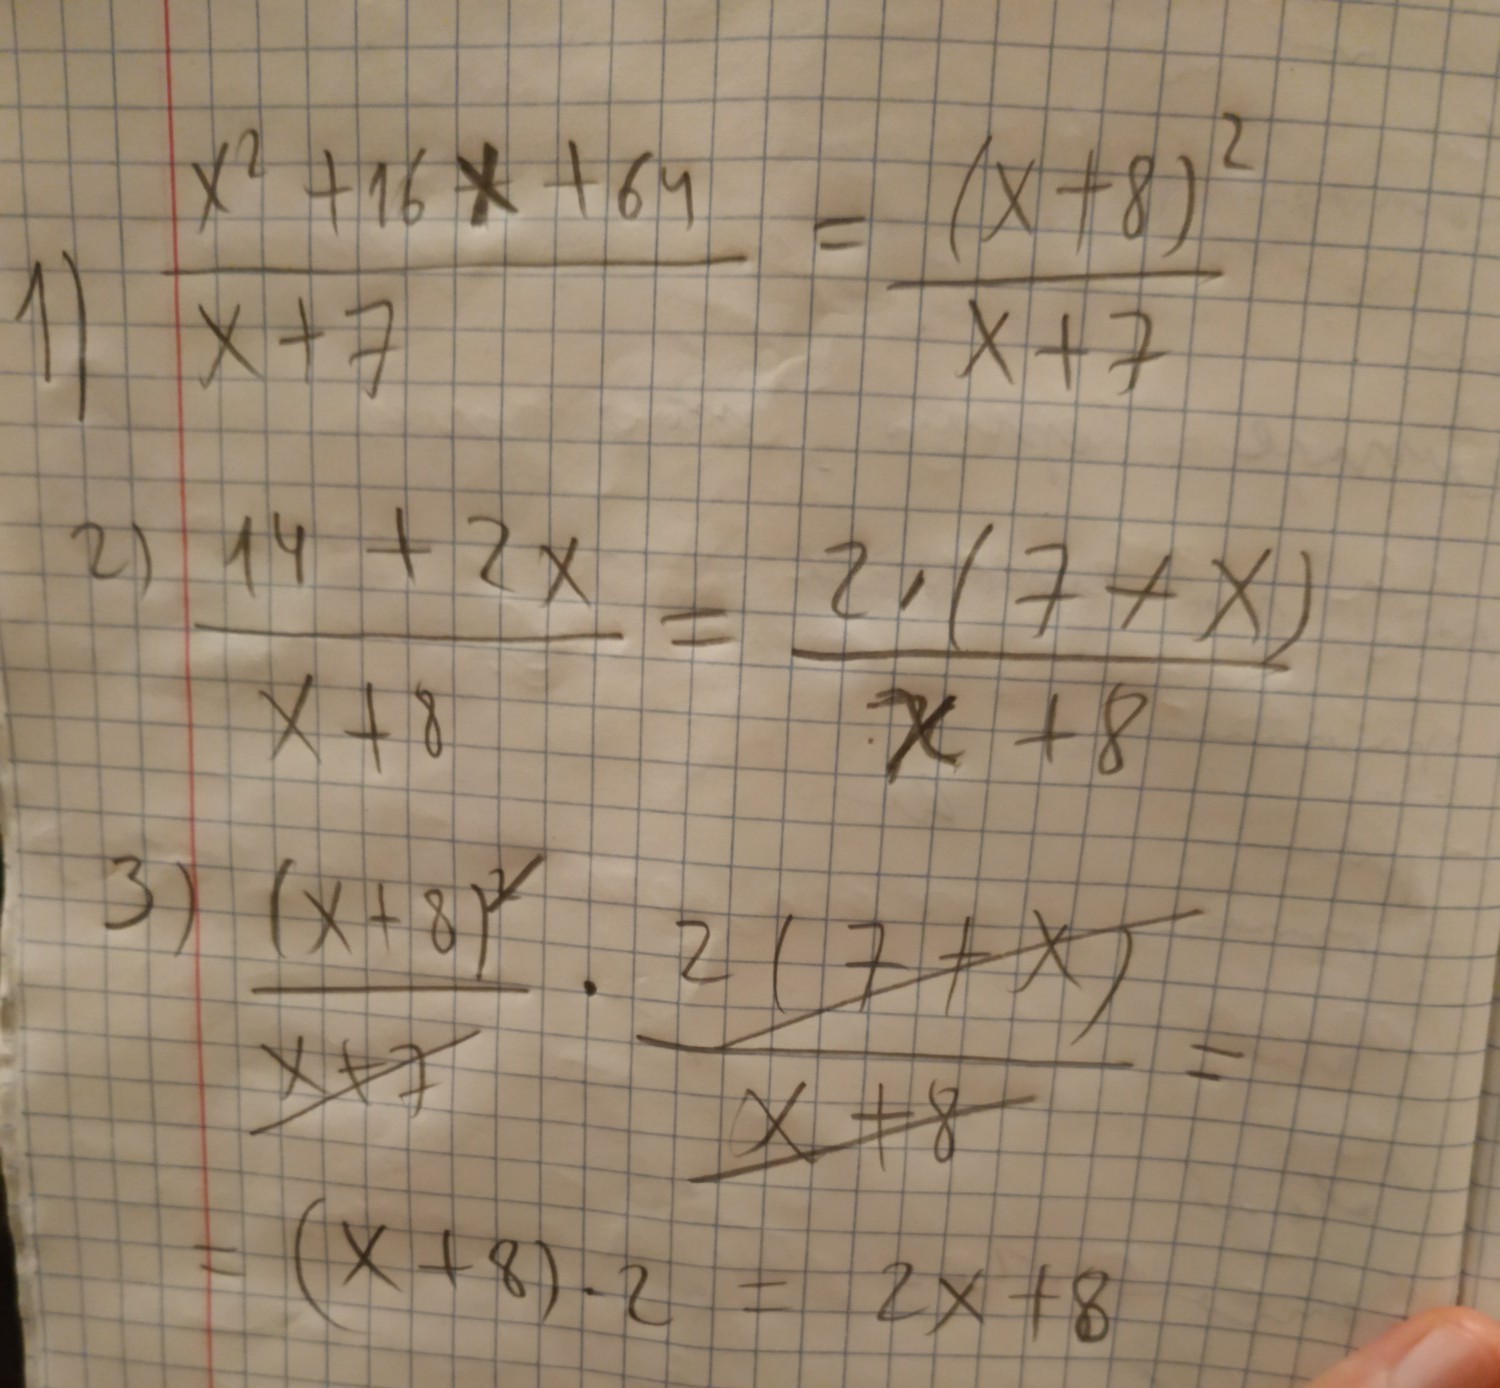 1) (x² + 16x + 64)/(x + 7) = (x + 8)²/(x + 7)
2) (14 + 2x)/(x + 8) = 2·(7 + x)/(x + 8)
3) (x + 8)²/(x + 7) · 2(7 + x)/(x + 8) =
= (x + 8) · 2 = 2x + 8